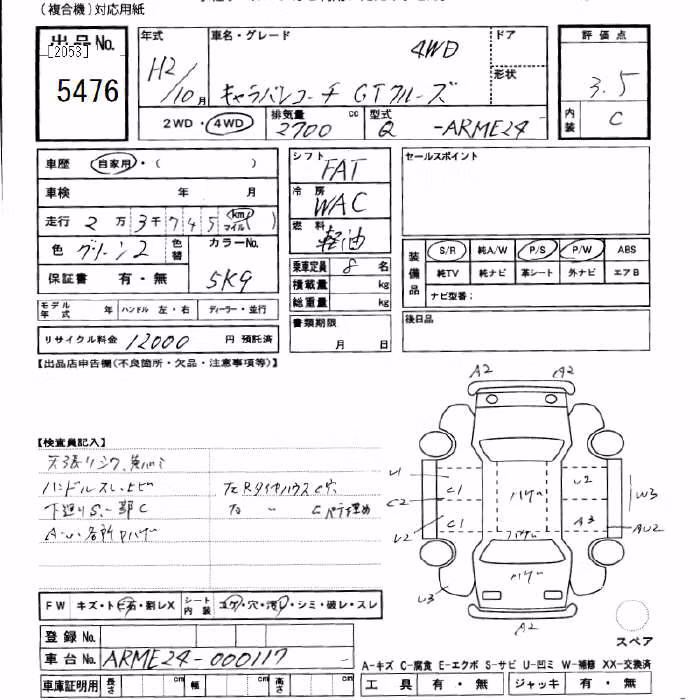 (複合機)対応用紙
出品No. 年式 車名・グレード 4WD ドア 評価点
[2053] H2/10月 キャラバンコーチ GTクルーズ 形状 3.5
5476 2WD・4WD 排気量 2700 cc 型式 Q -ARME24 内装 C
車歴 自家用・( ) シフト FAT セールスポイント
車検 年 月 冷房 WAC
走行 2万3千745 km マイル( ) 燃料 軽油
色 グリーン2 色替 カラーNo. 5K9 装備品 S/R 純A/W P/S P/W ABS
保証書 有・無 乗車定員 8名 純TV 純ナビ 革シート 外ナビ エアB
積載量 kg ナビ型番:
モデル年式 年 ハンドル 左・右 ディーラー・並行 総重量 kg
リサイクル料金 12000 円 預託済 書類期限 月 日 後日品
【出品店申告欄(不良箇所・欠品・注意事項等)】
A2 A2
【検査員記入】
ハンドルスレ
下廻りS、一部C
A・U各所
C1 U2
C2 W3
C1 A3 AU2
U2
U3
A2
スペア
FW キズ・トビ石・割レX シート内装 コゲ・穴・汚レ・シミ・破レ・スレ
登録No.
車台No. ARME24-000117
A-キズ C-腐食 E-エクボ S-サビ U-凹ミ W-補修 XX-交換済
車庫証明用 長さ cm 幅 cm 高さ cm 工具 有・無 ジャッキ 有・無